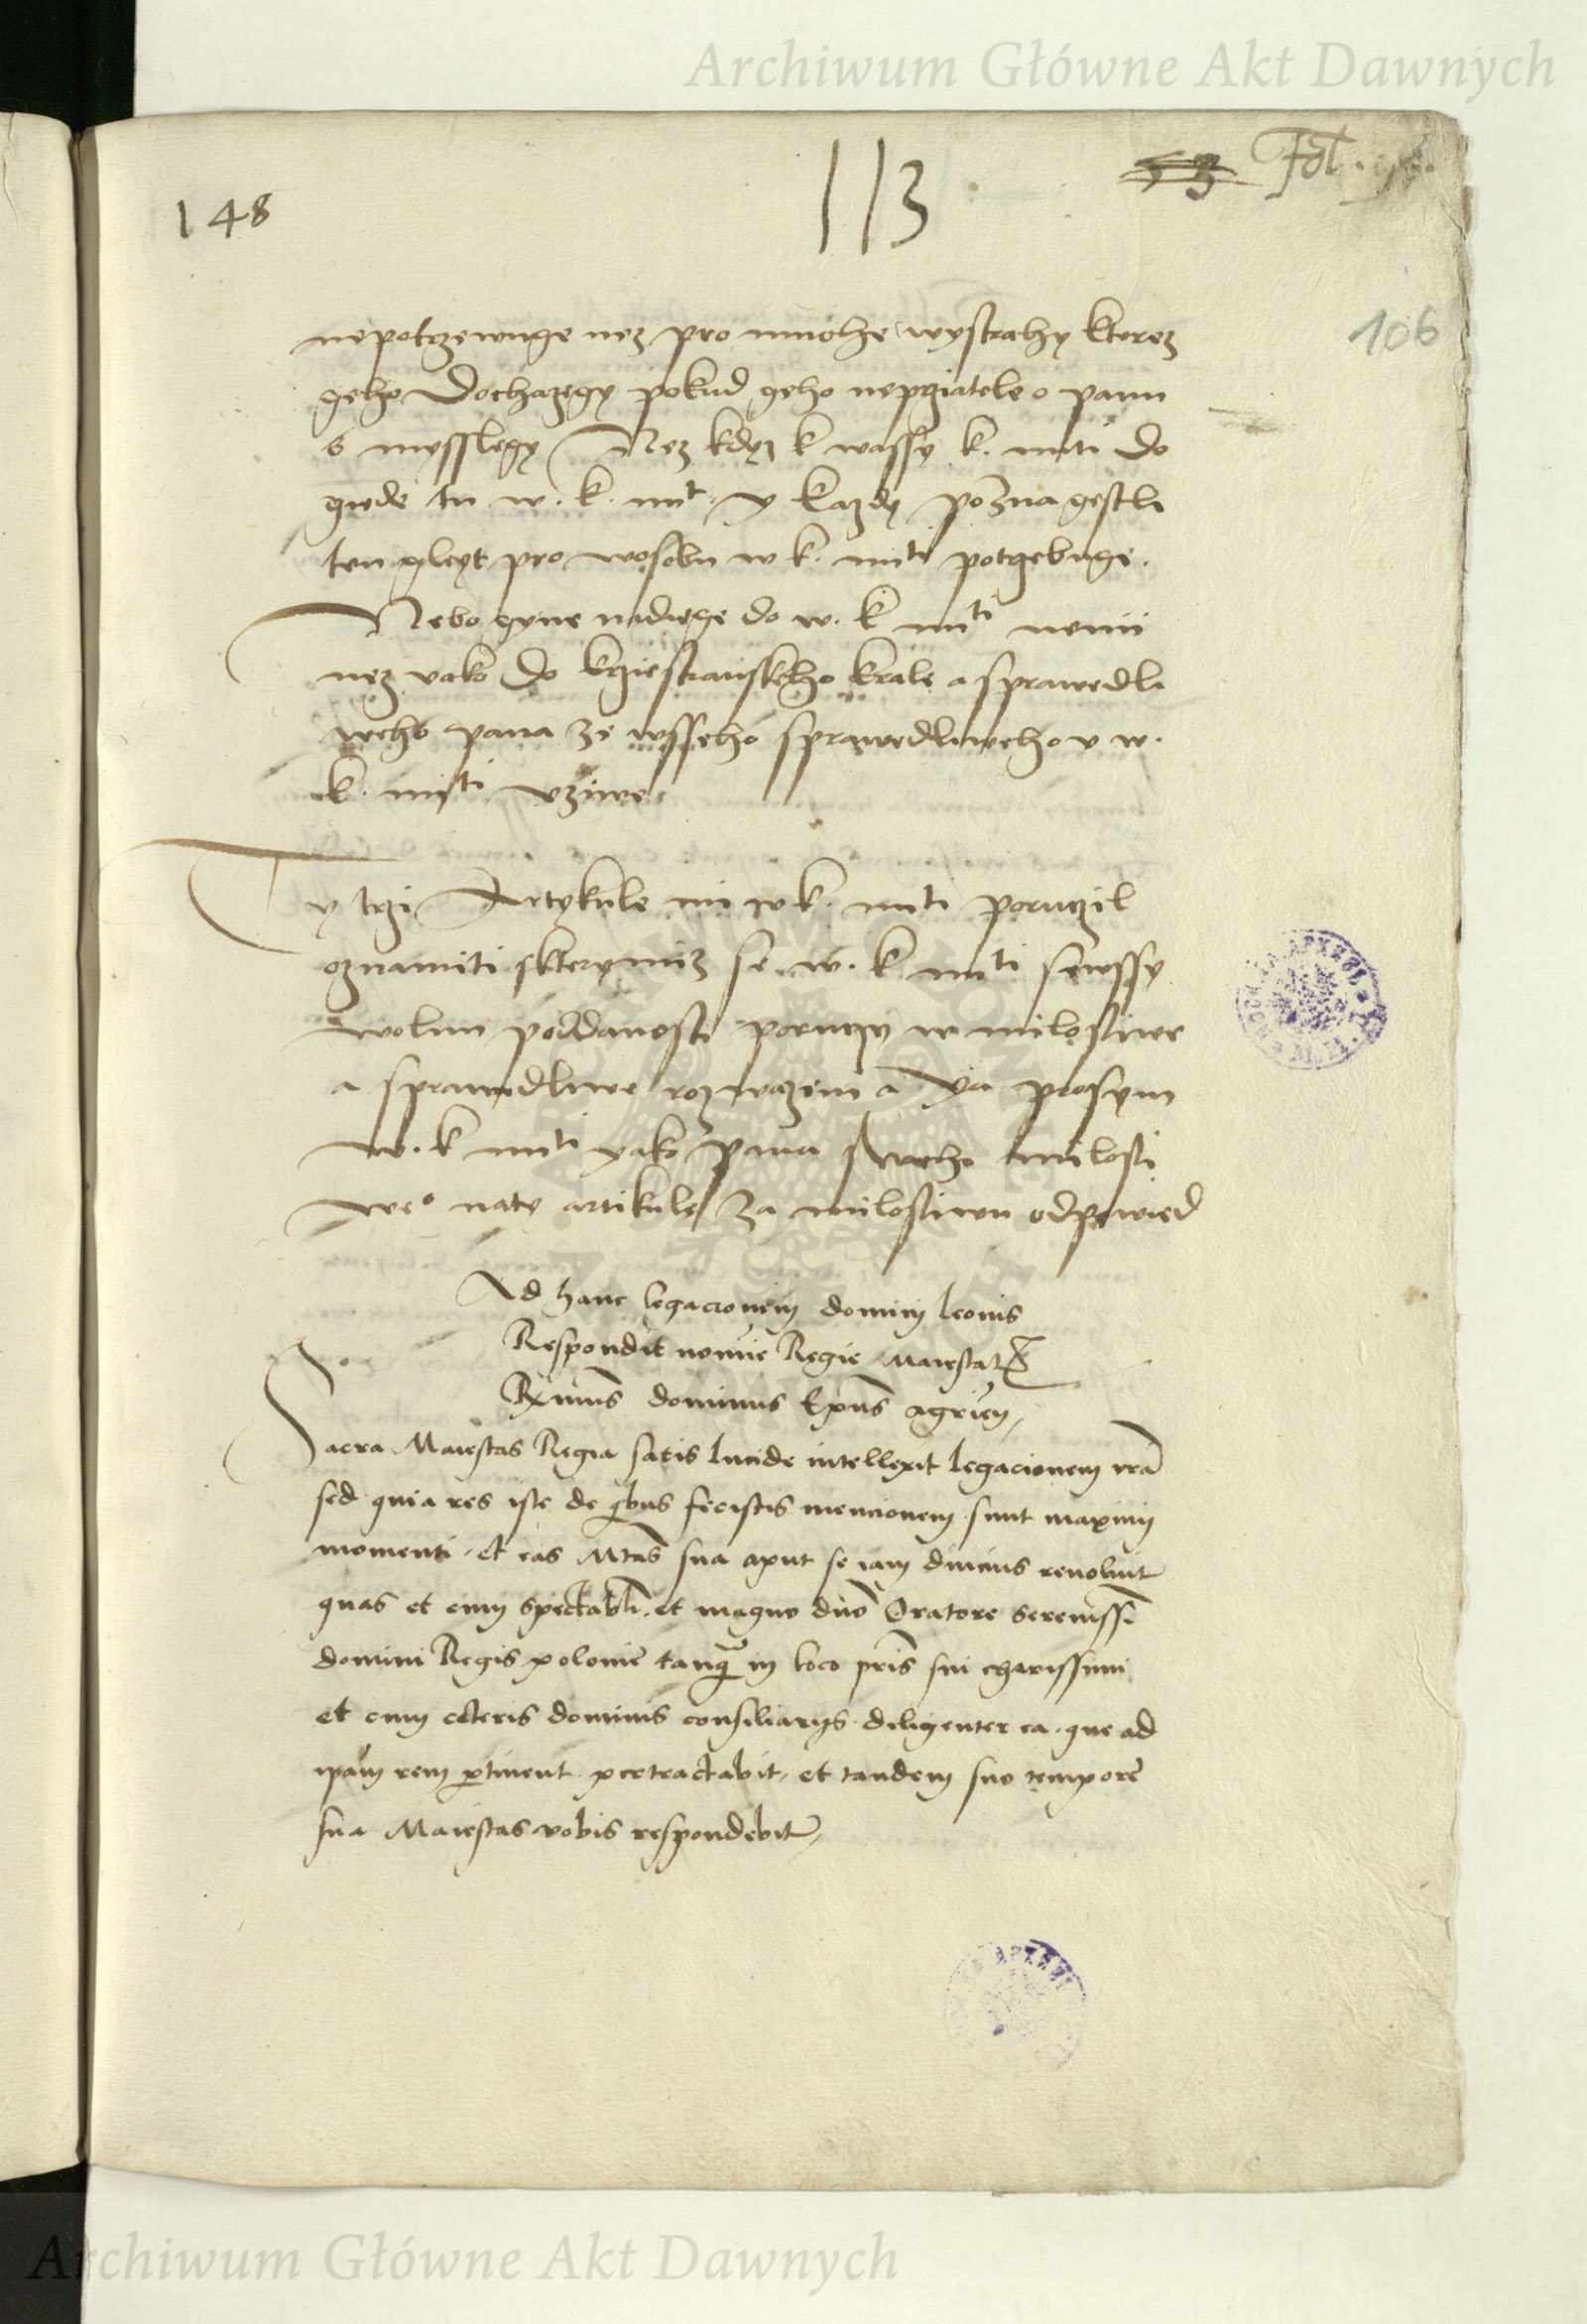 Archiwum Główne Akt Dawnych
148
113
53 Fol.
106
nepotrzewuge nez pro mnohe wystrahy kterez
geho dochazegy pokud geho neprziatele o panu
b mysslegy Nez kdyz k wassy k. mti do
giede tu w. k. mt. y kazdy pozna gestli
ten gleyt pro wosobu w k. mti potrzebuge.
Nebo gyne nadiege do w. k mti nemii
nez yako do krziestianskeho krale a sprawedli
weho pana ze wsseho sprawedliweho v w.
k. mti vziwe
Ty trzi Artykule mi w k. mti poruczil
oznamiti skterymiz se w. k mti sewssy
wolnu poddanosti poruczy w milostiwe
a sprawedliwe rozwazeni a ya prosym
w. k mti yako pana sweho milosti
weo naty artikule za milostiwu odpowied
Ad hanc legacionem domini leonis
Respondit nomine Regie Maiestatis
Rximus dominus Epus agrien
Sacra Maiestas Regia satis lucide intellexit legacionem vram
sed quia res iste de qbus fecistis mencionem sunt maximi
momenti et eas Mtas sua aput se iam diucius reuoluit
quas et cum spectabli et magno dno Oratore serenissi
domini Regis polonie tanq in loco pris sui charissimi
et cum ceteris dominis consiliarys diligenter ea que ad
ipam rem ptinent pertractabit et tandem suo tempore
sua Maiestas vobis respondebit
Archiwum Główne Akt Dawnych